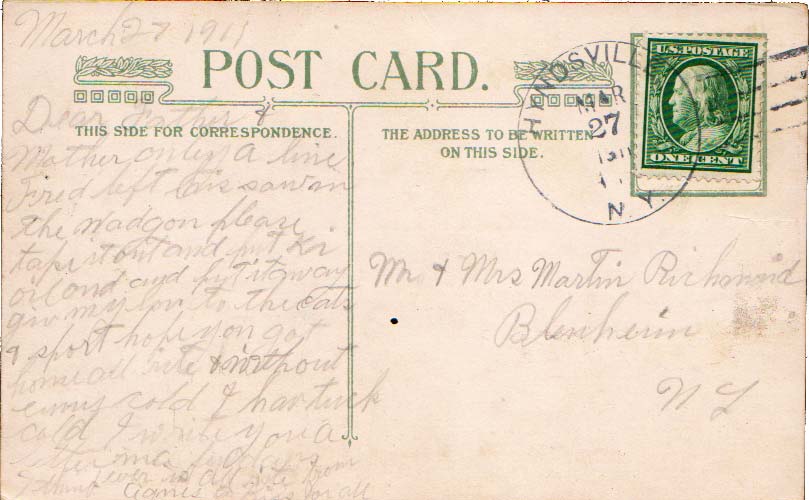 March 27 1911
POST CARD.
THIS SIDE FOR CORRESPONDENCE.
THE ADDRESS TO BE WRITTEN
ON THIS SIDE.
U.S. POSTAGE
ONE CENT
HANDSVILLE
MAR
27
N.Y.
Dear Father &
Mother only a line
Fred left his saw in
the wadgon please
take it out and put Ker
oil ond and put it away
giv my lov to the cats
& sport hope you got
home all rite & without
enny cold I hav tuck
cold I write you a
all rite from
for all
Mr & Mrs Martin Richmond
Blenheim
N Y